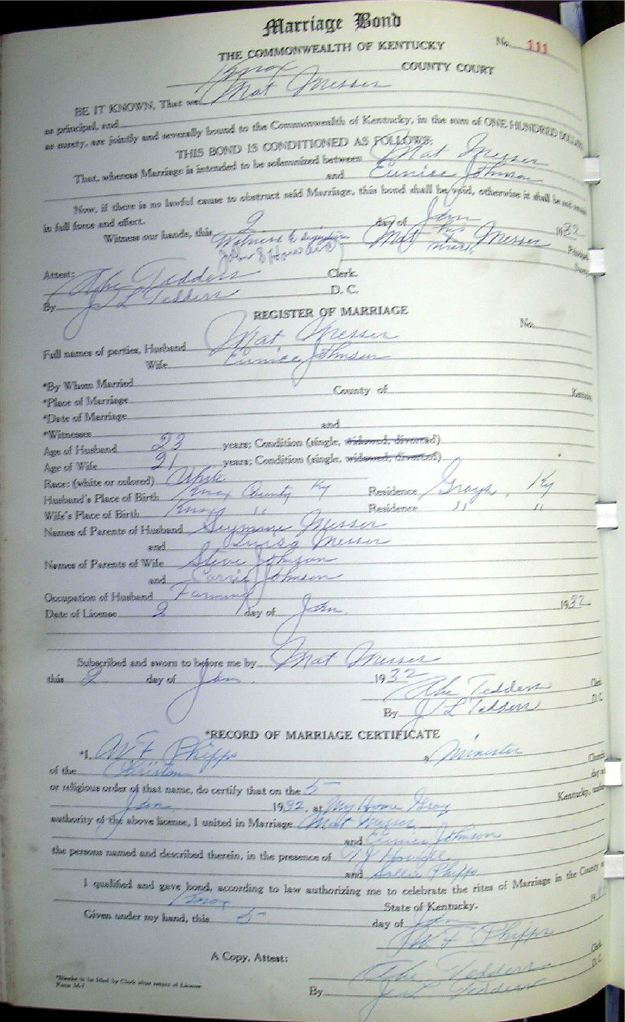 Marriage Bond
No. 111
THE COMMONWEALTH OF KENTUCKY
Knox COUNTY COURT
BE IT KNOWN, That we Mat Messer
as principal, and
as surety, are jointly and severally bound to the Commonwealth of Kentucky, in the sum of ONE HUNDRED DOLLARS
THIS BOND IS CONDITIONED AS FOLLOWS:
That, whereas Marriage is intended to be solemnized between Mat Messer
and Eunice Johnson
Now, if there is no lawful cause to obstruct said Marriage, this bond shall be void, otherwise it shall be and remain
in full force and effect.
Witness our hands, this 2 day of Jan 1932
Witness to signature Mat his mark Messer Principal
Surety
Attest: Abe Tedders Clerk.
By J L Tedders D. C.
REGISTER OF MARRIAGE
No.
Full names of parties, Husband Mat Messer
Wife Eunice Johnson
*By Whom Married
*Place of Marriage County of Kentucky
*Date of Marriage
*Witnesses and
Age of Husband 23 years; Condition (single, widowed, divorced)
Age of Wife 21 years; Condition (single, widowed, divorced)
Race: (white or colored) White
Husband's Place of Birth Knox County Ky Residence Grays, Ky
Wife's Place of Birth Knox " Residence " "
Names of Parents of Husband Messer
and Messer
Names of Parents of Wife Steve Johnson
and Carrie Johnson
Occupation of Husband Farming
Date of License 2 day of Jan. 1932
Subscribed and sworn to before me by Mat Messer
this 2 day of Jan. 1932
Abe Tedders Clerk
By J L Tedders D. C.
*RECORD OF MARRIAGE CERTIFICATE
*I, W F Phipps a Minister Church
of the Christian day
or religious order of that name, do certify that on the 5 Kentucky, under
Jan 1932, at My Home Gray
authority of the above license, I united in Marriage Mat Messer
and Eunice Johnson
the persons named and described therein, in the presence of
and Sallie Phipps
I qualified and gave bond, according to law authorizing me to celebrate the rites of Marriage in the County
Knox State of Kentucky.
Given under my hand, this 5 day of Jan 19
W F Phipps
A Copy, Attest: Abe Tedders Clerk
By J. L. Tedders D. C.
*Blanks to be filled by Clerk after return of License